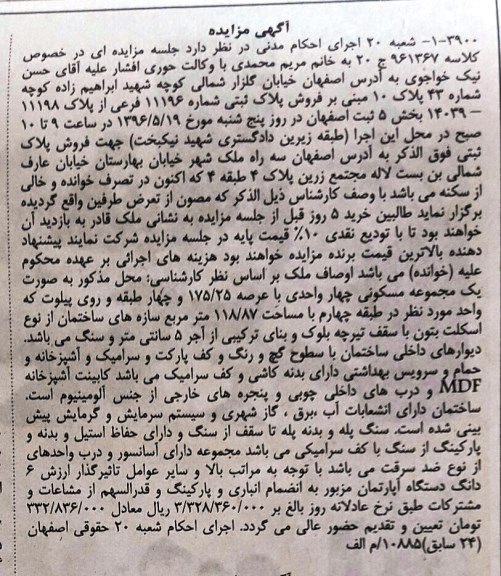 آگهی مزایده
۱-۳۹۰۰- شعبه ۲۰ اجرای احکام مدنی در نظر دارد جلسه مزایده ای در خصوص
کلاسه ۹۶۱۳۶۷ ج ۲۰ به خانم مریم محمدی با وکالت حوری افشار علیه آقای حسن
نیک خواجوی به آدرس اصفهان خیابان گلزار شمالی کوچه شهید ابراهیم زاده کوچه
شماره ۴۳ پلاک ۱۰ مبنی بر فروش پلاک ثبتی شماره ۱۱۱۹۶ فرعی از پلاک ۱۱۱۹۸
-۱۴۰۳۹ بخش ۵ ثبت اصفهان در روز پنج شنبه مورخ ۱۳۹۶/۵/۱۹ در ساعت ۹ تا ۱۰
صبح در محل این اجرا (طبقه زیرین دادگستری شهید نیکبخت) جهت فروش پلاک
ثبتی فوق الذکر به آدرس اصفهان سه راه ملک شهر خیابان بهارستان خیابان عارف
شمالی بن بست لاله مجتمع زرین پلاک ۴ طبقه ۴ که اکنون در تصرف خوانده و خالی
از سکنه می باشد با وصف کارشناس ذیل الذکر که مصون از تعرض طرفین واقع گردیده
برگزار نماید طالبین خرید ۵ روز قبل از جلسه مزایده به نشانی ملک قادر به بازدید آن
خواهند بود تا با تودیع نقدی ۱۰٪ قیمت پایه در جلسه مزایده شرکت نمایند پیشنهاد
دهنده بالاترین قیمت برنده مزایده خواهند بود هزینه های اجرائی بر عهده محکوم
علیه (خوانده) می باشد اوصاف ملک بر اساس نظر کارشناسی: محل مذکور به صورت
یک مجموعه مسکونی چهار واحدی با عرصه ۱۷۵/۲۵ و چهار طبقه و روی پیلوت که
واحد مورد نظر در طبقه چهارم با مساحت ۱۱۸/۸۷ متر مربع سازه های ساختمان از نوع
اسکلت بتون با سقف تیرچه بلوک و بنای ترکیبی از آجر ۵ سانتی متر و سنگ می باشد.
دیوارهای داخلی ساختمان با سطوح گچ و رنگ و کف پارکت و سرامیک و آشپزخانه و
حمام و سرویس بهداشتی دارای بدنه کاشی و کف سرامیک می باشد کابینت آشپزخانه
MDF و درب های داخلی چوبی و پنجره های خارجی از جنس آلومینیوم است.
ساختمان دارای انشعابات آب ،برق ، گاز شهری و سیستم سرمایش و گرمایش پیش
بینی شده است. سنگ پله و بدنه پله تا سقف از سنگ و دارای حفاظ استیل و بدنه و
پارکینگ از سنگ با کف سرامیکی می باشد مجموعه دارای آسانسور و درب واحدهای
از نوع ضد سرقت می باشد با توجه به مراتب بالا و سایر عوامل تاثیرگذار ارزش ۶
دانگ دستگاه آپارتمان مزبور به انضمام انباری و پارکینگ و قدرالسهم از مشاعات و
مشترکات طبق نرخ عادلانه روز بالغ بر ۳/۳۲۸/۳۶۰/۰۰۰ ریال معادل ۳۳۲/۸۳۶/۰۰۰
تومان تعیین و تقدیم حضور عالی می گردد. اجرای احکام شعبه ۲۰ حقوقی اصفهان
(۲۴ سابق)۱۰۸۸۵/م الف